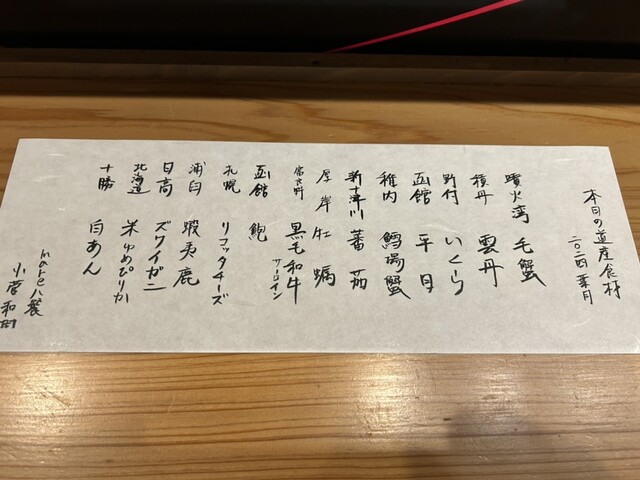 本日の道産食材
二〇二四 葉月
噴火湾 毛蟹
積丹 雲丹
野付 いくら
函館 平目
稚内 鱈場蟹
新十津川 蕃茄
厚岸 牡蠣
富良野 黒毛和牛 サーロイン
函館 鮑
札幌 リコッタチーズ
浦臼 蝦夷鹿
日高 ズワイガニ
北海道 米ゆめぴりか
十勝 白あん
mare八農
小菅和樹